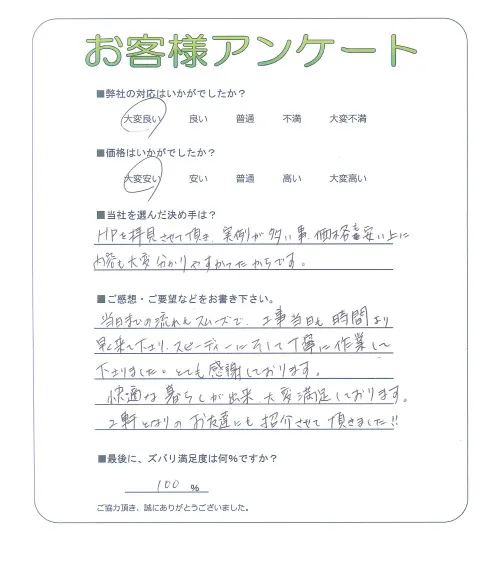 お客様アンケート
■弊社の対応はいかがでしたか？
大変良い 良い 普通 不満 大変不満
■価格はいかがでしたか？
大変安い 安い 普通 高い 大変高い
■当社を選んだ決め手は？
HPを拝見させて頂き、実例が多い事、価格も安い上に
内容も大変分かりやすかったからです。
■ご感想・ご要望などをお書き下さい。
当日までの流れもスムーズで、工事当日も時間より
早く来て下さり、スピーディーにそして丁寧に作業して
下さりました。とても感謝しております。
快適な暮らしが出来、大変満足しております。
2軒となりのお友達にも紹介させて頂きました!!
■最後に、ズバリ満足度は何%ですか？
100 %
ご協力頂き、誠にありがとうございました。